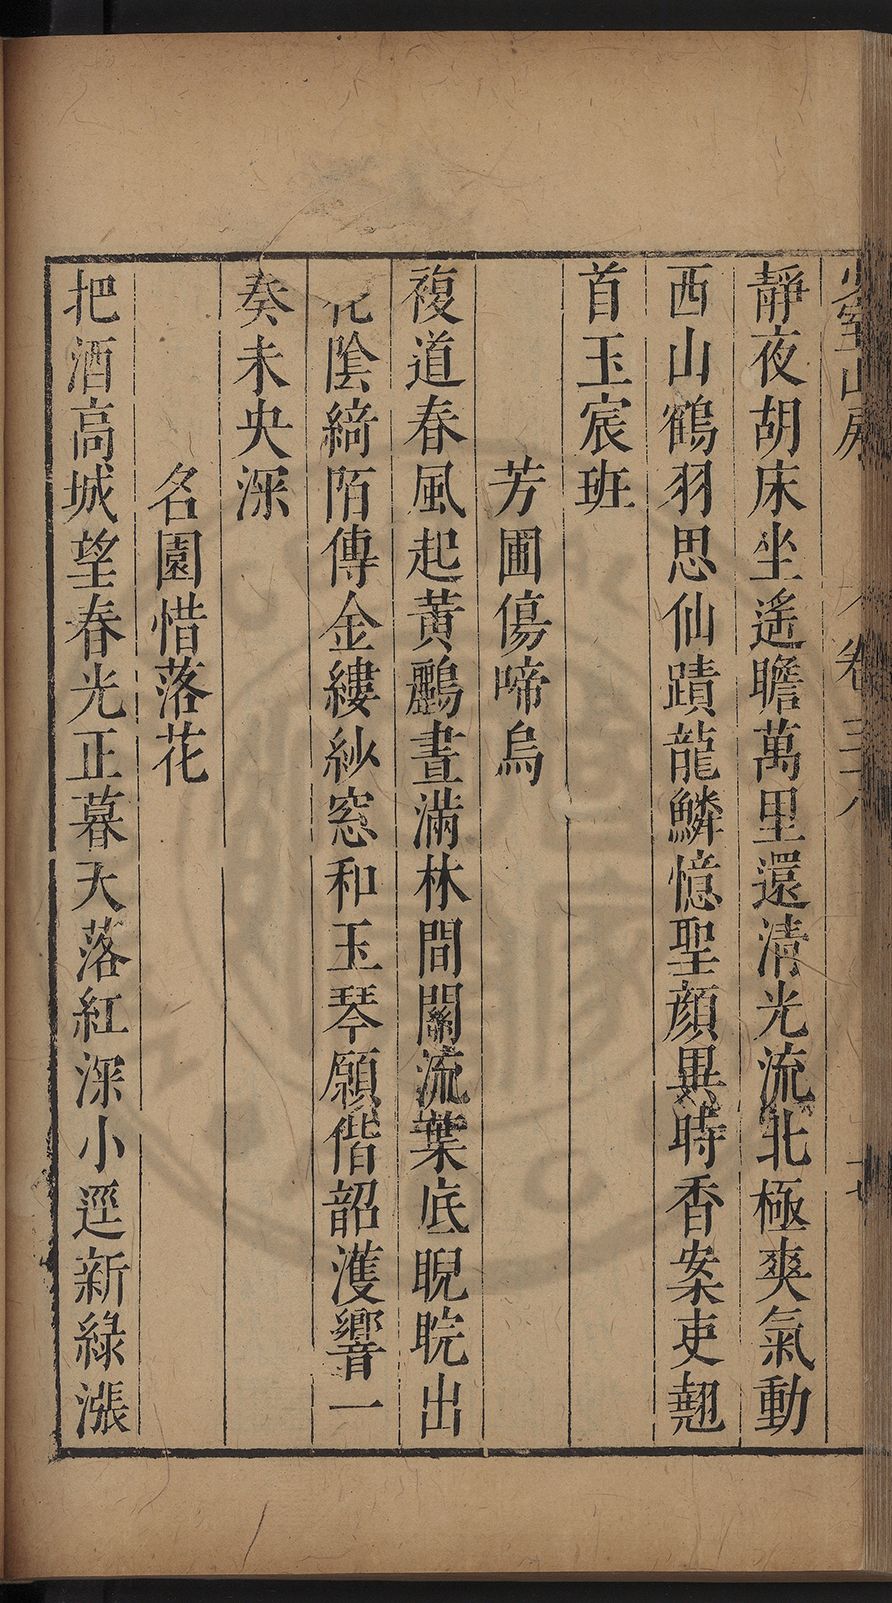 少室山房 卷三十八 七
靜夜胡床坐遙瞻萬里還清光流北極爽氣動
西山鶴羽思仙蹟龍鱗憶聖顏異時香案吏翹
首玉宸班
芳圃傷啼烏
複道春風起黃鸝晝滿林間關流葉底睍睆出
花陰綺陌傳金縷紗窓和玉琴願偕韶濩響一
奏未央深
名園惜落花
把酒高城望春光正暮天落紅深小逕新綠漲